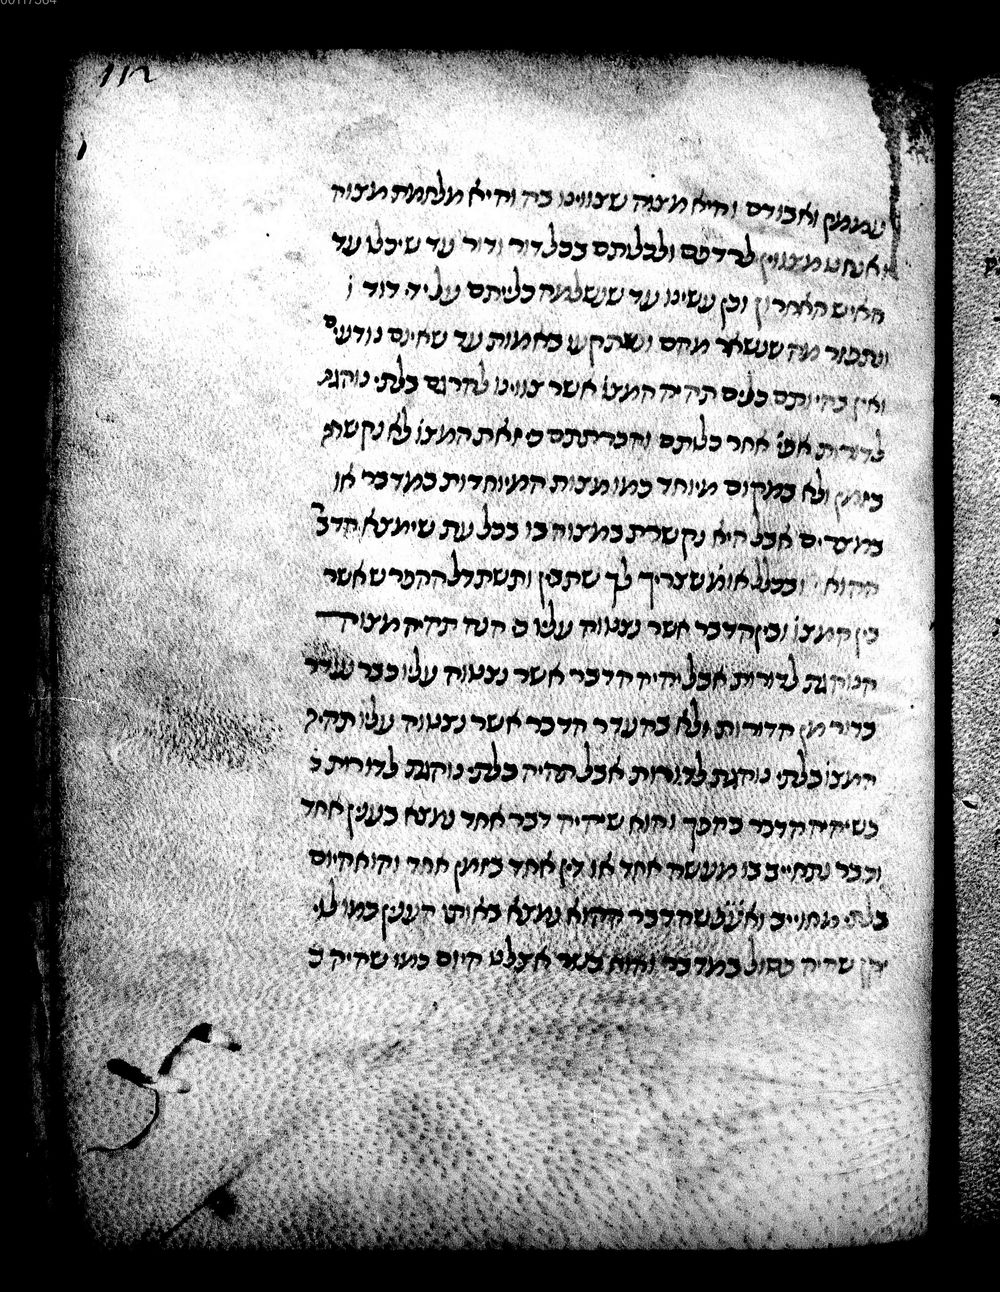 112
עממין ואבודם והיא מצוה שצווינו בה והיא מלחמת מצוה
ואנחנו מצווין לרדפם ולכלותם בכל דור ודור עד שיכלו עד
האיש האחרון וכן עשינו עד שנשלמה כליתם על יד דוד
ונתפזר מה שנשאר מהם ונתקעו באמות עד שאינם נודעים
ואין בהיותם כלים תהיה המצו אשר צווינו להרגם בלתי נוהגת
לדורות אפי אחר כלותם והכרתתם כי זאת המצו לא נקשרת
בזמן ולא במקום מיוחד כמו מצות המיוחדות במדבר או
במצרים אבל היא נקשרת במצוה בו בכל עת שימצא הדבר
ההוא ובכלל אומ שצריך לך שתבין ותשתדל ההפרש אשר
בין המצו ובין הדבר אשר נצטוה עליו כי הנה תהיה מצוה
הנוהגת לדורות אבל יהיה הדבר אשר נצטוה עליו כבר נעדר
בדור מן הדורות ולא בהעדר הדבר אשר נצטוה עליו תהיה
המצו בלתי נוהגת לדורות אבל תהיה בלתי נוהגת לדורות כ
כשיהיה הדבר בהפך והוא שיהיה דבר אחד נמצא בענין אחד
ודבר נתחייב בו מעשה אחד או דין אחד בזמן אחד והוא היום
בלתי מחוייב ואעפ שהדבר ההוא נמצא באותו הענין כמו לוי
זקן שהיה פסול במדבר והוא כשר אצלנו היום כמו שהיה ב